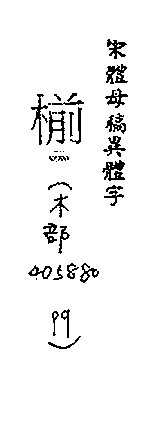 宋體母稿異體字
椾
(木部
405880
P9)